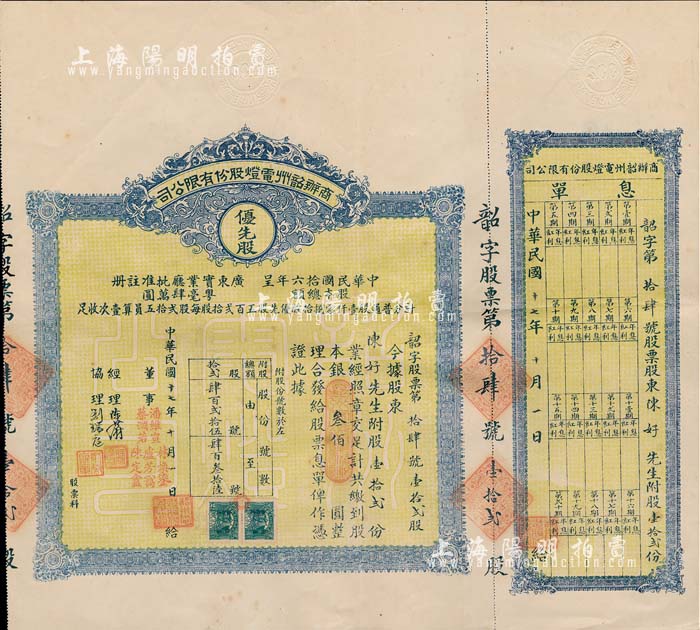 上海陽明拍賣
www.yangmingauction.com
商辦韶州電燈股份有限公司
優先股
中華民國拾六年呈 廣東實業廳批准註冊
股本總額 毫肆萬圓
百弍拾股每股弍拾五員算壹次收足
韶字股票第拾肆號壹拾弍股
今據股東
陳好先生附股壹拾弍份
業經照章交足計共繳到股
本銀 叁佰 圓整
理合發給股票息單俾作憑
證此據
附股份號數於左
附股 股份號數
總額 由 至
股 號 號
拾弍 肆百弍拾伍 肆百叁拾陸
中華民國十七年十月一日給
董事
經理
協理
股票科
韶字股票第拾肆號壹拾弍股
商辦韶州電燈股份有限公司
息單
韶字第拾肆號股票股東陳好先生附股壹拾弍份
第壹期 年息紅利
第弍期 年息紅利
第三期 年息紅利
第四期 年息紅利
第五期 年息紅利
第六期 年息紅利
第七期 年息紅利
第八期 年息紅利
第九期 年息紅利
第十期 年息紅利
第十一期 年息紅利
第十二期 年息紅利
第十三期 年息紅利
第十四期 年息紅利
第十五期 年息紅利
第十六期 年息紅利
第十七期 年息紅利
第十八期 年息紅利
第十九期 年息紅利
第弍十期 年息紅利
中華民國十七年十月一日
經
韶字股票第拾肆號壹拾弍股
上海陽明拍賣
www.yangmingauction.com
上海陽明拍賣
www.yangmingauction.com